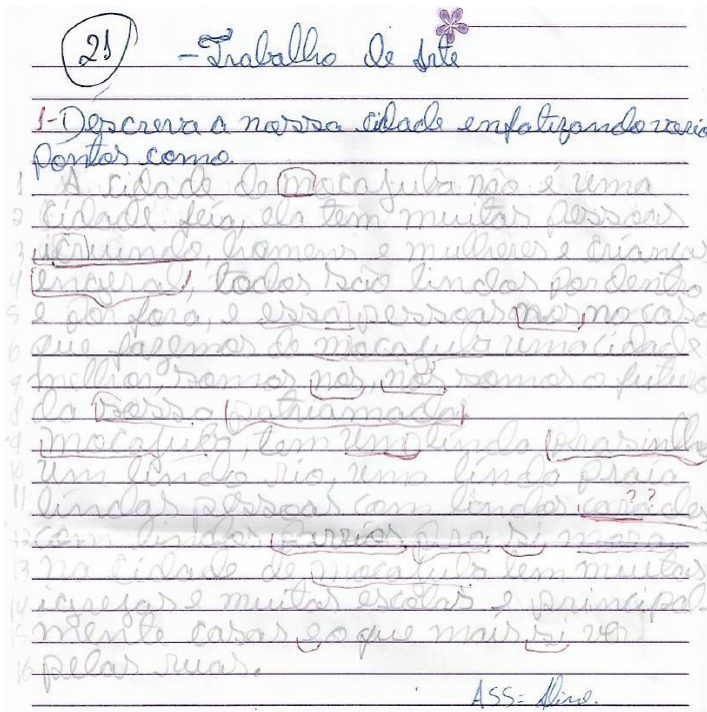 21 - Trabalho de Arte
1- Descreva a nossa cidade enfatizando vario
pontos como.
1 A cidade de mocajuba não é uma
2 cidade feia, ela tem muitas pessoas
3 homens e mulheres e crianças
4 engeral, todos são lindos por dentro
5 e por fora, e essas pessoas nos no caso
6 que fazemos de mocajuba uma cidade
7 melhor, somos nos, nos somos o futuro
8 da nossa patriamada
9 mocajuba, tem um linda prasinha
10 um lindo rio, uma linda praia
11 lindas pessoas com lindos ??
12 com lindos pra si mora
13 na cidade de mocajuba tem muitas
14 igrejas e muitas escolas e principal-
15 mente casas e o que mais si vê
16 pelas ruas.
ASS= Aline.